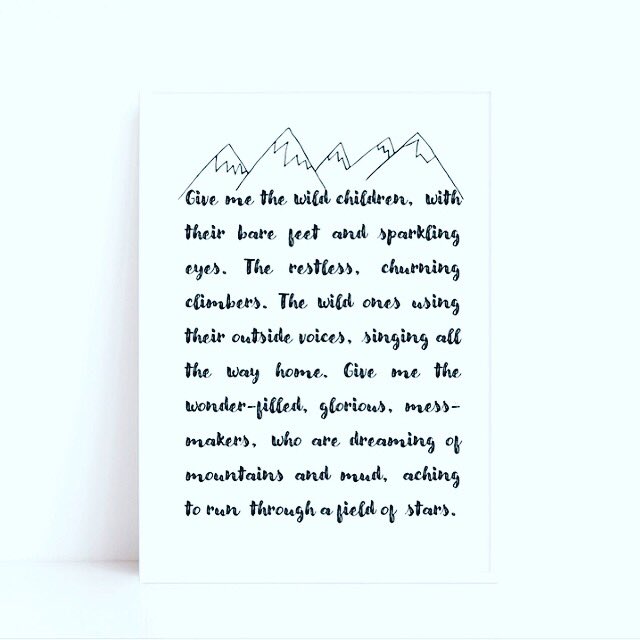 Give me the wild children, with
their bare feet and sparkling
eyes. The restless, churning
climbers. The wild ones using
their outside voices, singing all
the way home. Give me the
wonder-filled, glorious, mess-
makers, who are dreaming of
mountains and mud, aching
to run through a field of stars.